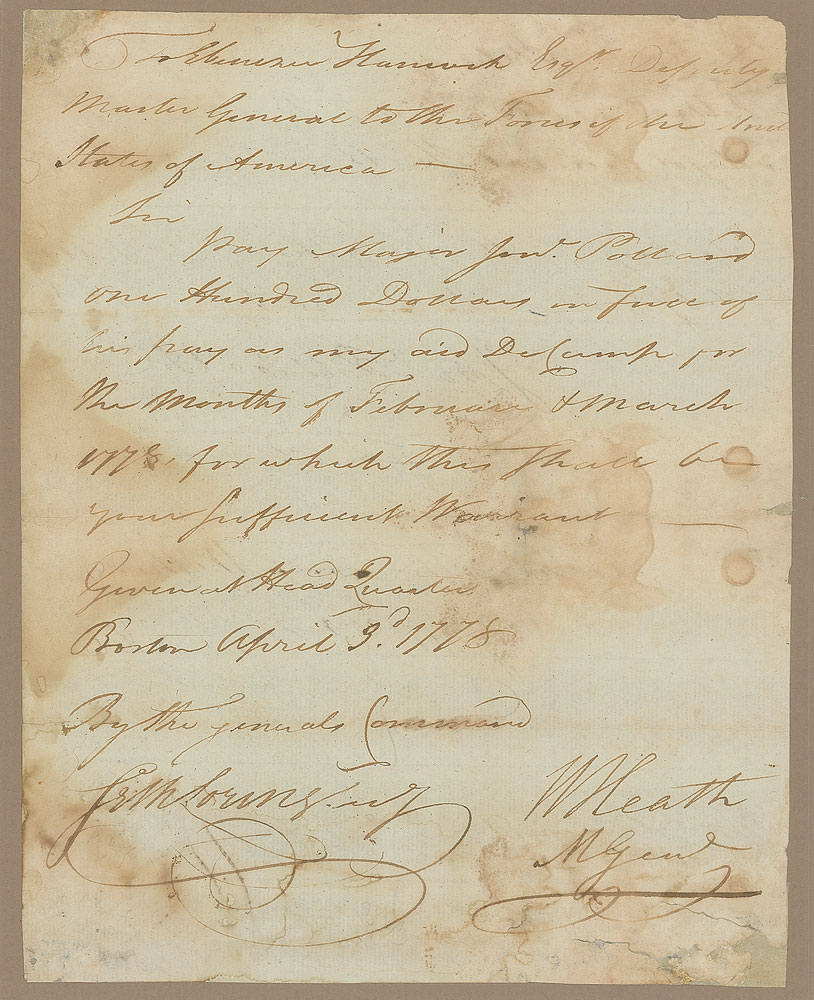 To Ebenezer Hancock Esqr. Deputy
Master General to the Forces of the
States of America —
Sir
Pay Major Jonn. Pollard
one Hundred Dollars in full of
his pay as my aid DeCamp for
the Months of February & March
1778, for which this shall be
your sufficient Warrant —
Given at Head Quarters
Boston April 3d. 1778
By the generals Command
Seth Loring Secy
W Heath
M Genl